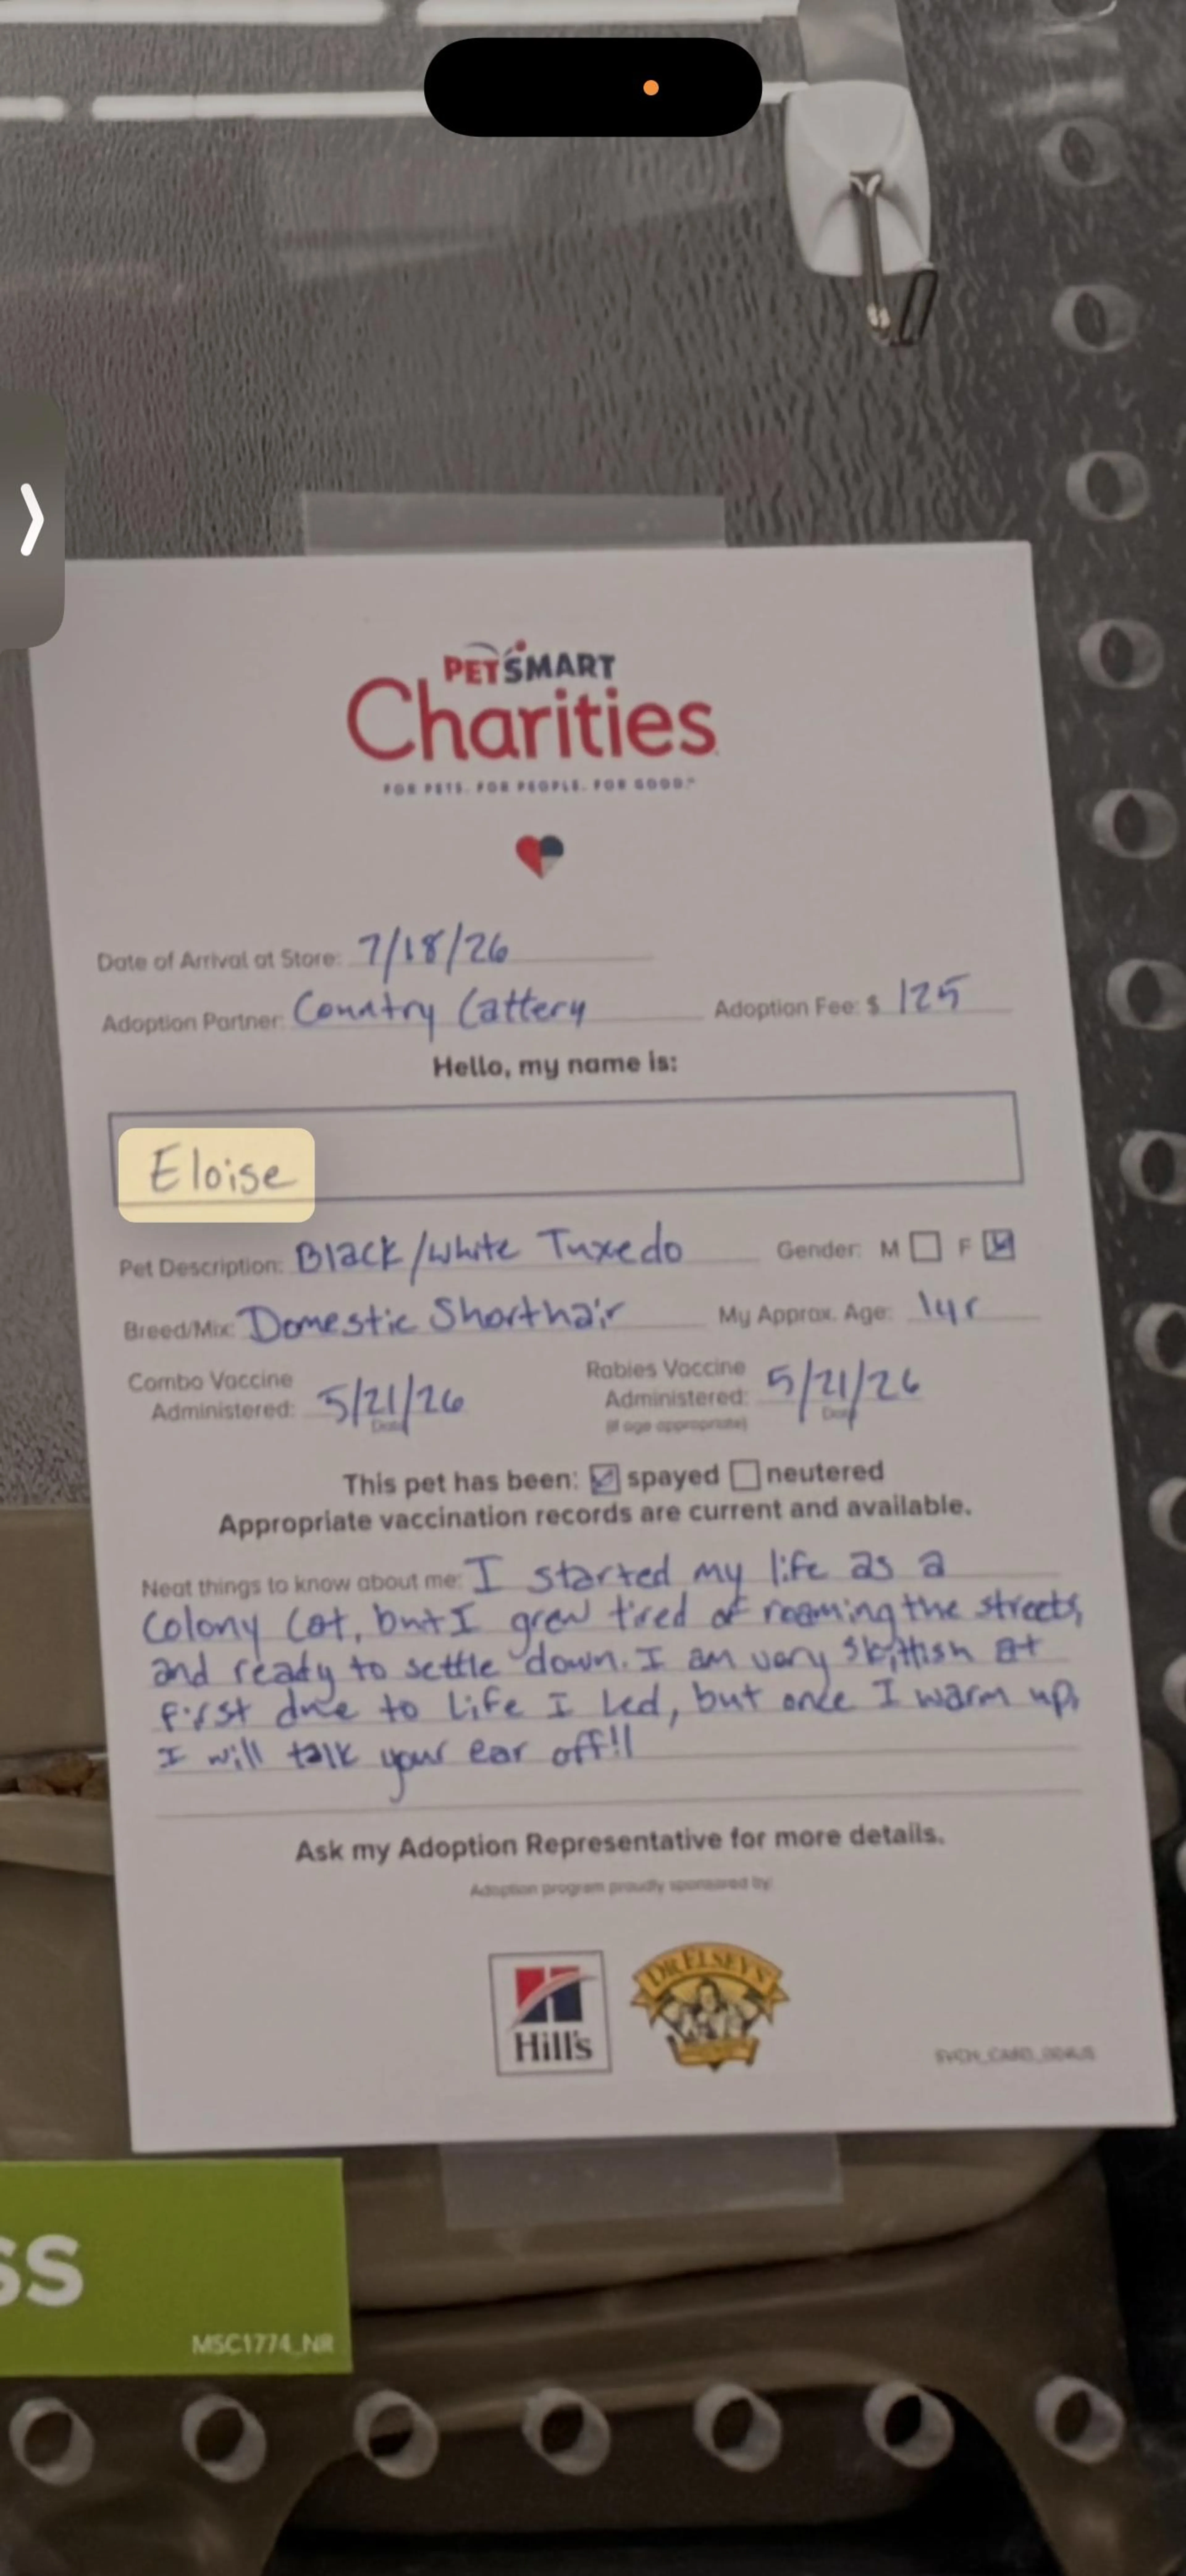 PETSMART
Charities
FOR PETS. FOR PEOPLE. FOR GOOD.™
Date of Arrival at Store: 7/18/26
Adoption Partner: Country Cattery Adoption Fee: $ 125
Hello, my name is:
Eloise
Pet Description: Black/White Tuxedo Gender: M F
Breed/Mix: Domestic Shorthair My Approx. Age: 1yr
Combo Vaccine Administered: 5/21/26 Rabies Vaccine Administered: 5/21/26
Date Date
(if age appropriate)
This pet has been: spayed neutered
Appropriate vaccination records are current and available.
Neat things to know about me: I started my life as a
Colony Cat, but I grew tired of roaming the streets,
and ready to settle down. I am very skittish at
first due to life I led, but once I warm up,
I will talk your ear off!!
Ask my Adoption Representative for more details.
Adoption program proudly sponsored by:
Hill's
DR. ELSEY'S
SS
MSC1774_NR